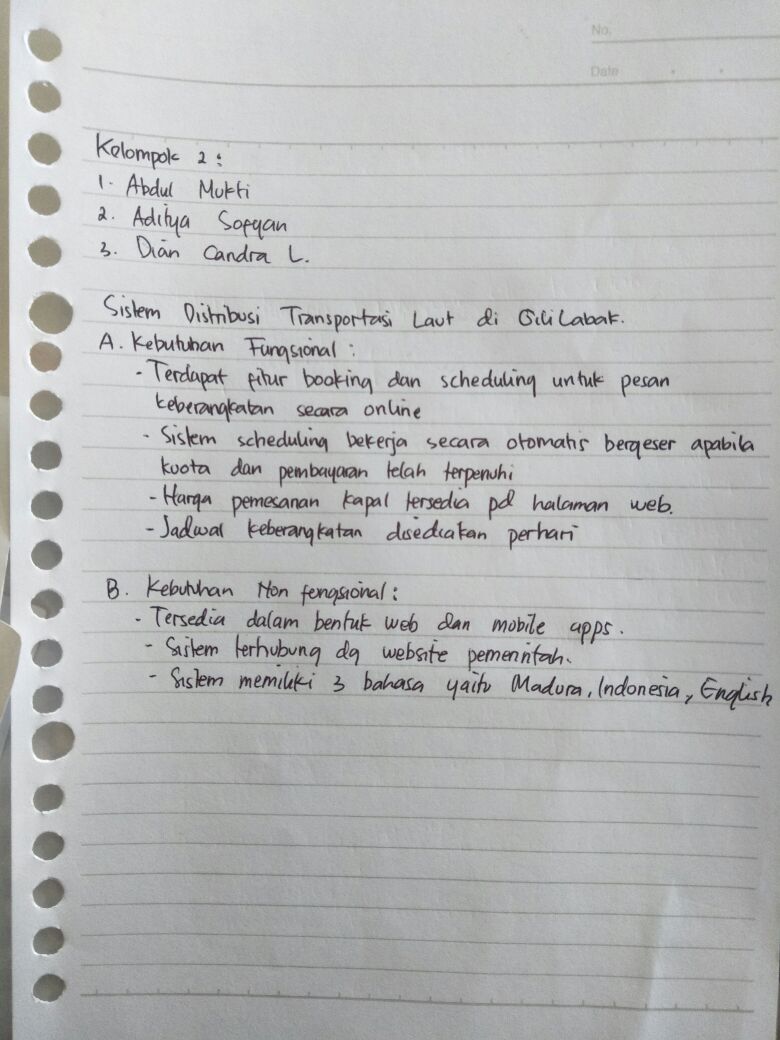 No.
Date
Kelompok 2 :
1. Abdul Mukti
2. Aditya Sofyan
3. Dian Candra L.
Sistem Distribusi Transportasi Laut di Gili Labak.
A. Kebutuhan Fungsional :
- Terdapat fitur booking dan scheduling untuk pesan
keberangkatan secara online
- Sistem scheduling bekerja secara otomatis bergeser apabila
kuota dan pembayaran telah terpenuhi
- Harga pemesanan kapal tersedia pd halaman web.
- Jadwal keberangkatan disediakan perhari
B. Kebutuhan Non fengsional :
- Tersedia dalam bentuk web dan mobile apps.
- Sistem terhubung dg website pemerintah.
- Sistem memiliki 3 bahasa yaitu Madura, Indonesia, English